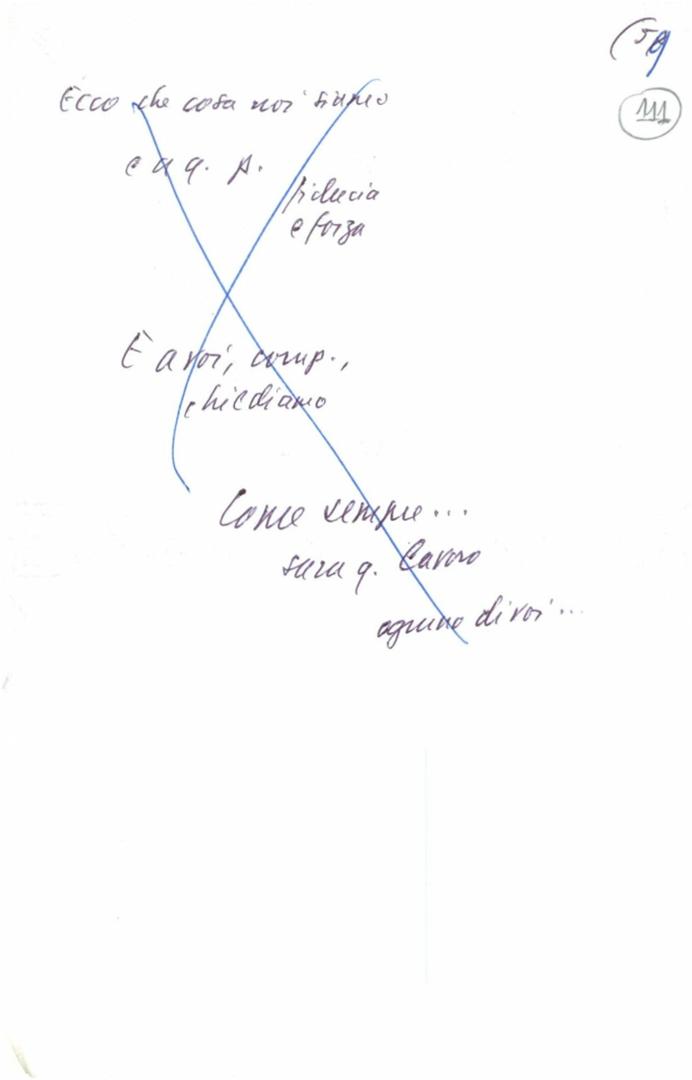 111
Ecco che cosa noi siamo
e a q. p.
fiducia
e forza
È a voi, comp.,
chiediamo
Come sempre...
sara q. lavoro
ognuno di voi...